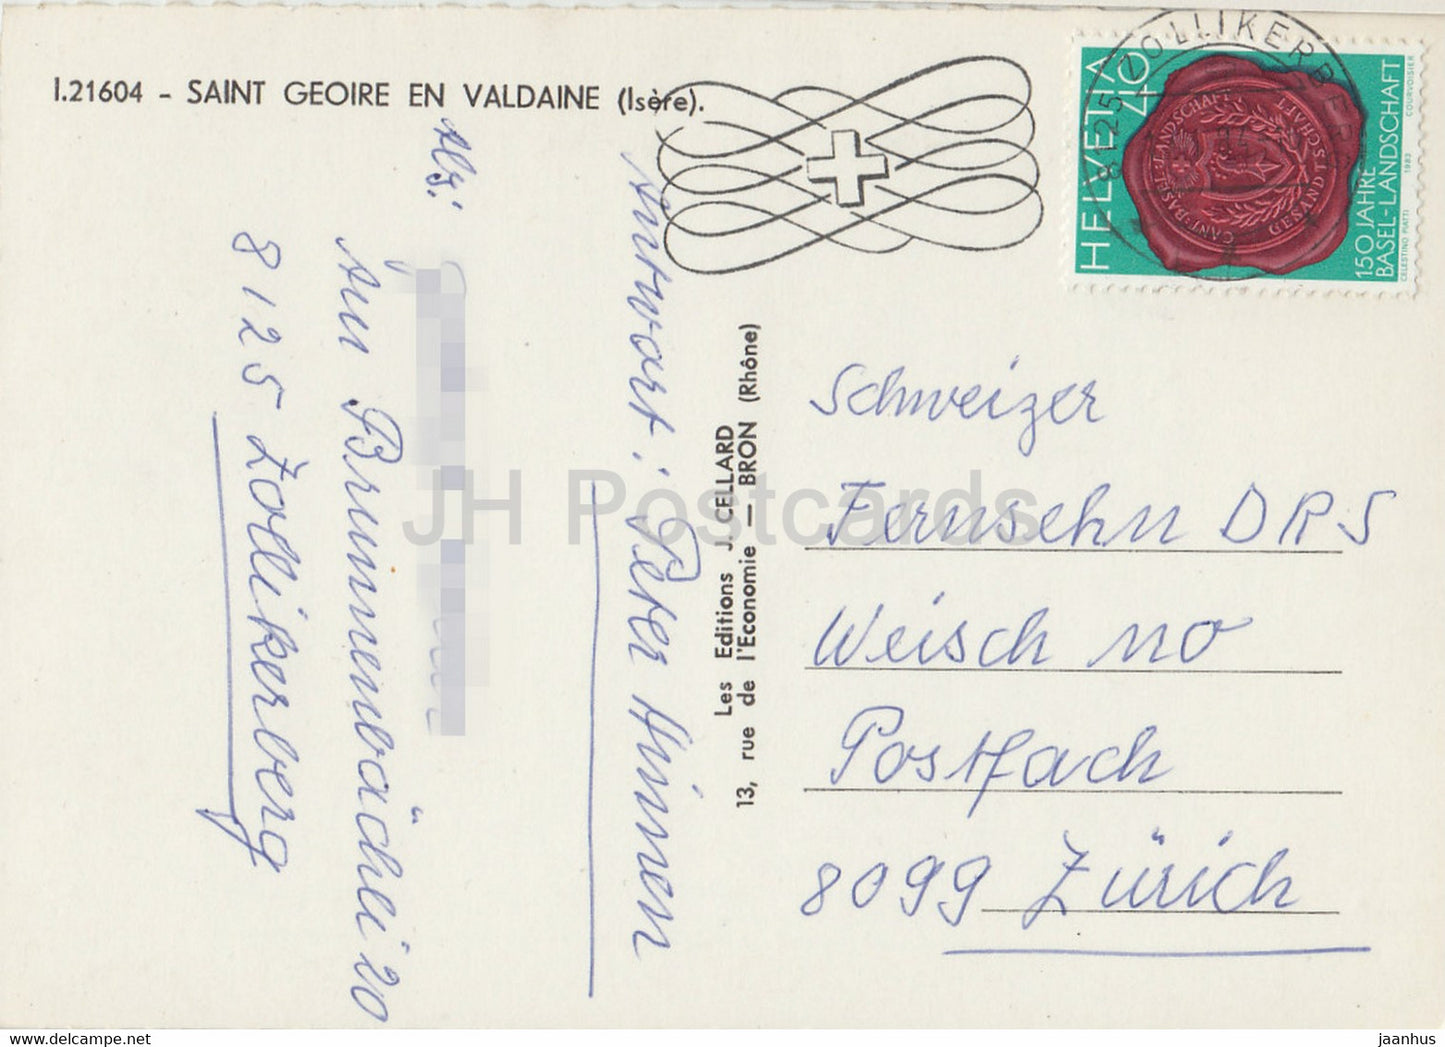 I.21604 - SAINT GEOIRE EN VALDAINE (Isère).
Abs:
Am Brunnenbächli 20
8125 Zollikerberg
Antwort: Peter Hinnen
Les Editions J. CELLARD
13, rue de l'Economie — BRON (Rhône)
8125 ZOLLIKERBERG
HELVETIA
40
150 JAHRE
BASEL-LANDSCHAFT
CELESTINO PIATTI 1983 COURVOISIER
Schweizer
Fernsehn DRS
Weisch no
Postfach
8099 Zürich
JH Postcards
https://www.hippostcard.com/store/jaanhus
jaanhus